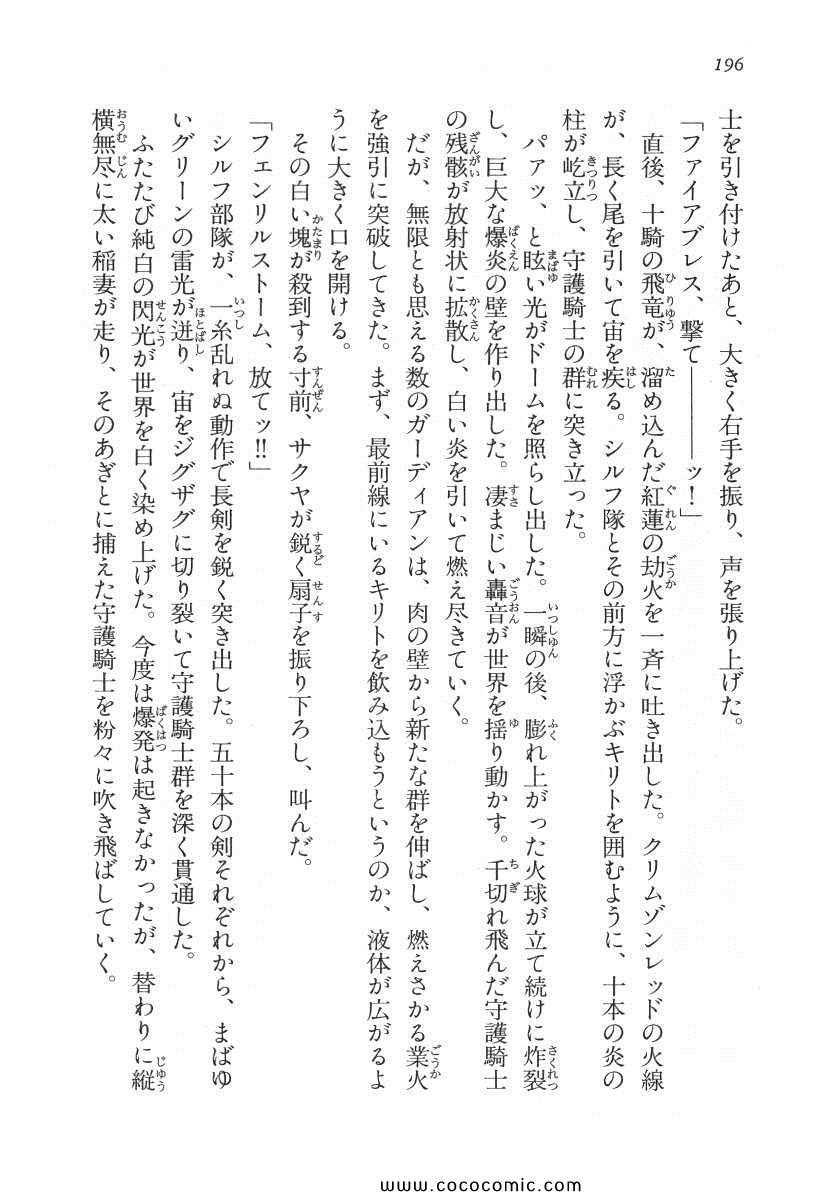 196
士を引き付けたあと、大きく右手を振り、声を張り上げた。
「ファイアブレス、撃て————ッ!」
直後、十騎の飛竜が、溜め込んだ紅蓮の劫火を一斉に吐き出した。クリムゾンレッドの火線
が、長く尾を引いて宙を疾る。シルフ隊とその前方に浮かぶキリトを囲むように、十本の炎の
柱が屹立し、守護騎士の群に突き立った。
パァッ、と眩い光がドームを照らし出した。一瞬の後、膨れ上がった火球が立て続けに炸裂
し、巨大な爆炎の壁を作り出した。凄まじい轟音が世界を揺り動かす。千切れ飛んだ守護騎士
の残骸が放射状に拡散し、白い炎を引いて燃え尽きていく。
だが、無限とも思える数のガーディアンは、肉の壁から新たな群を伸ばし、燃えさかる業火
を強引に突破してきた。まず、最前線にいるキリトを飲み込もうというのか、液体が広がるよ
うに大きく口を開ける。
その白い塊が殺到する寸前、サクヤが鋭く扇子を振り下ろし、叫んだ。
「フェンリルストーム、放てッ!!」
シルフ部隊が、一糸乱れぬ動作で長剣を鋭く突き出した。五十本の剣それぞれから、まばゆ
いグリーンの雷光が迸り、宙をジグザグに切り裂いて守護騎士群を深く貫通した。
ふたたび純白の閃光が世界を白く染め上げた。今度は爆発は起きなかったが、替わりに縦
横無尽に太い稲妻が走り、そのあぎとに捕えた守護騎士を粉々に吹き飛ばしていく。
www.cococomic.com/